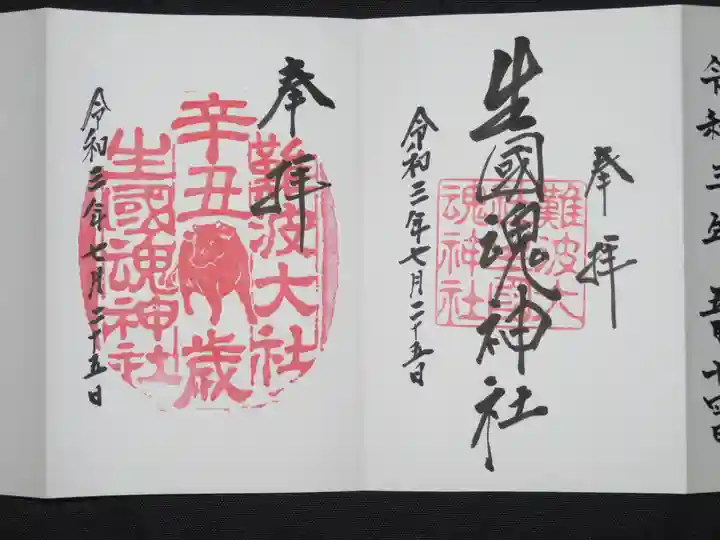 令和三年 五月十四日
奉拝
生國魂神社
難波大
社生國
魂神社
令和三年七月二十五日
奉拝
難波大社
辛丑歳
生國魂神社
令和三年七月二十五日